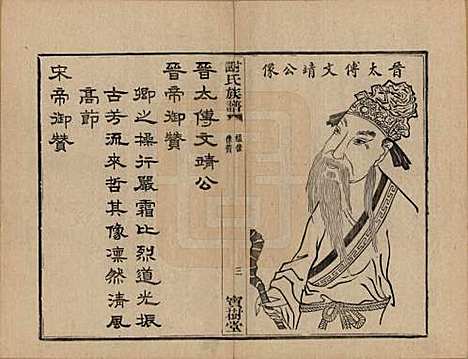 晉太傅文靖公像
謝氏族譜
像贊
三
寶樹堂
晉太傅文靖公
晉帝御贊
卿之操行嚴霜比烈道光振
古芳流來哲其像凜然清風
高節
宋帝御贊